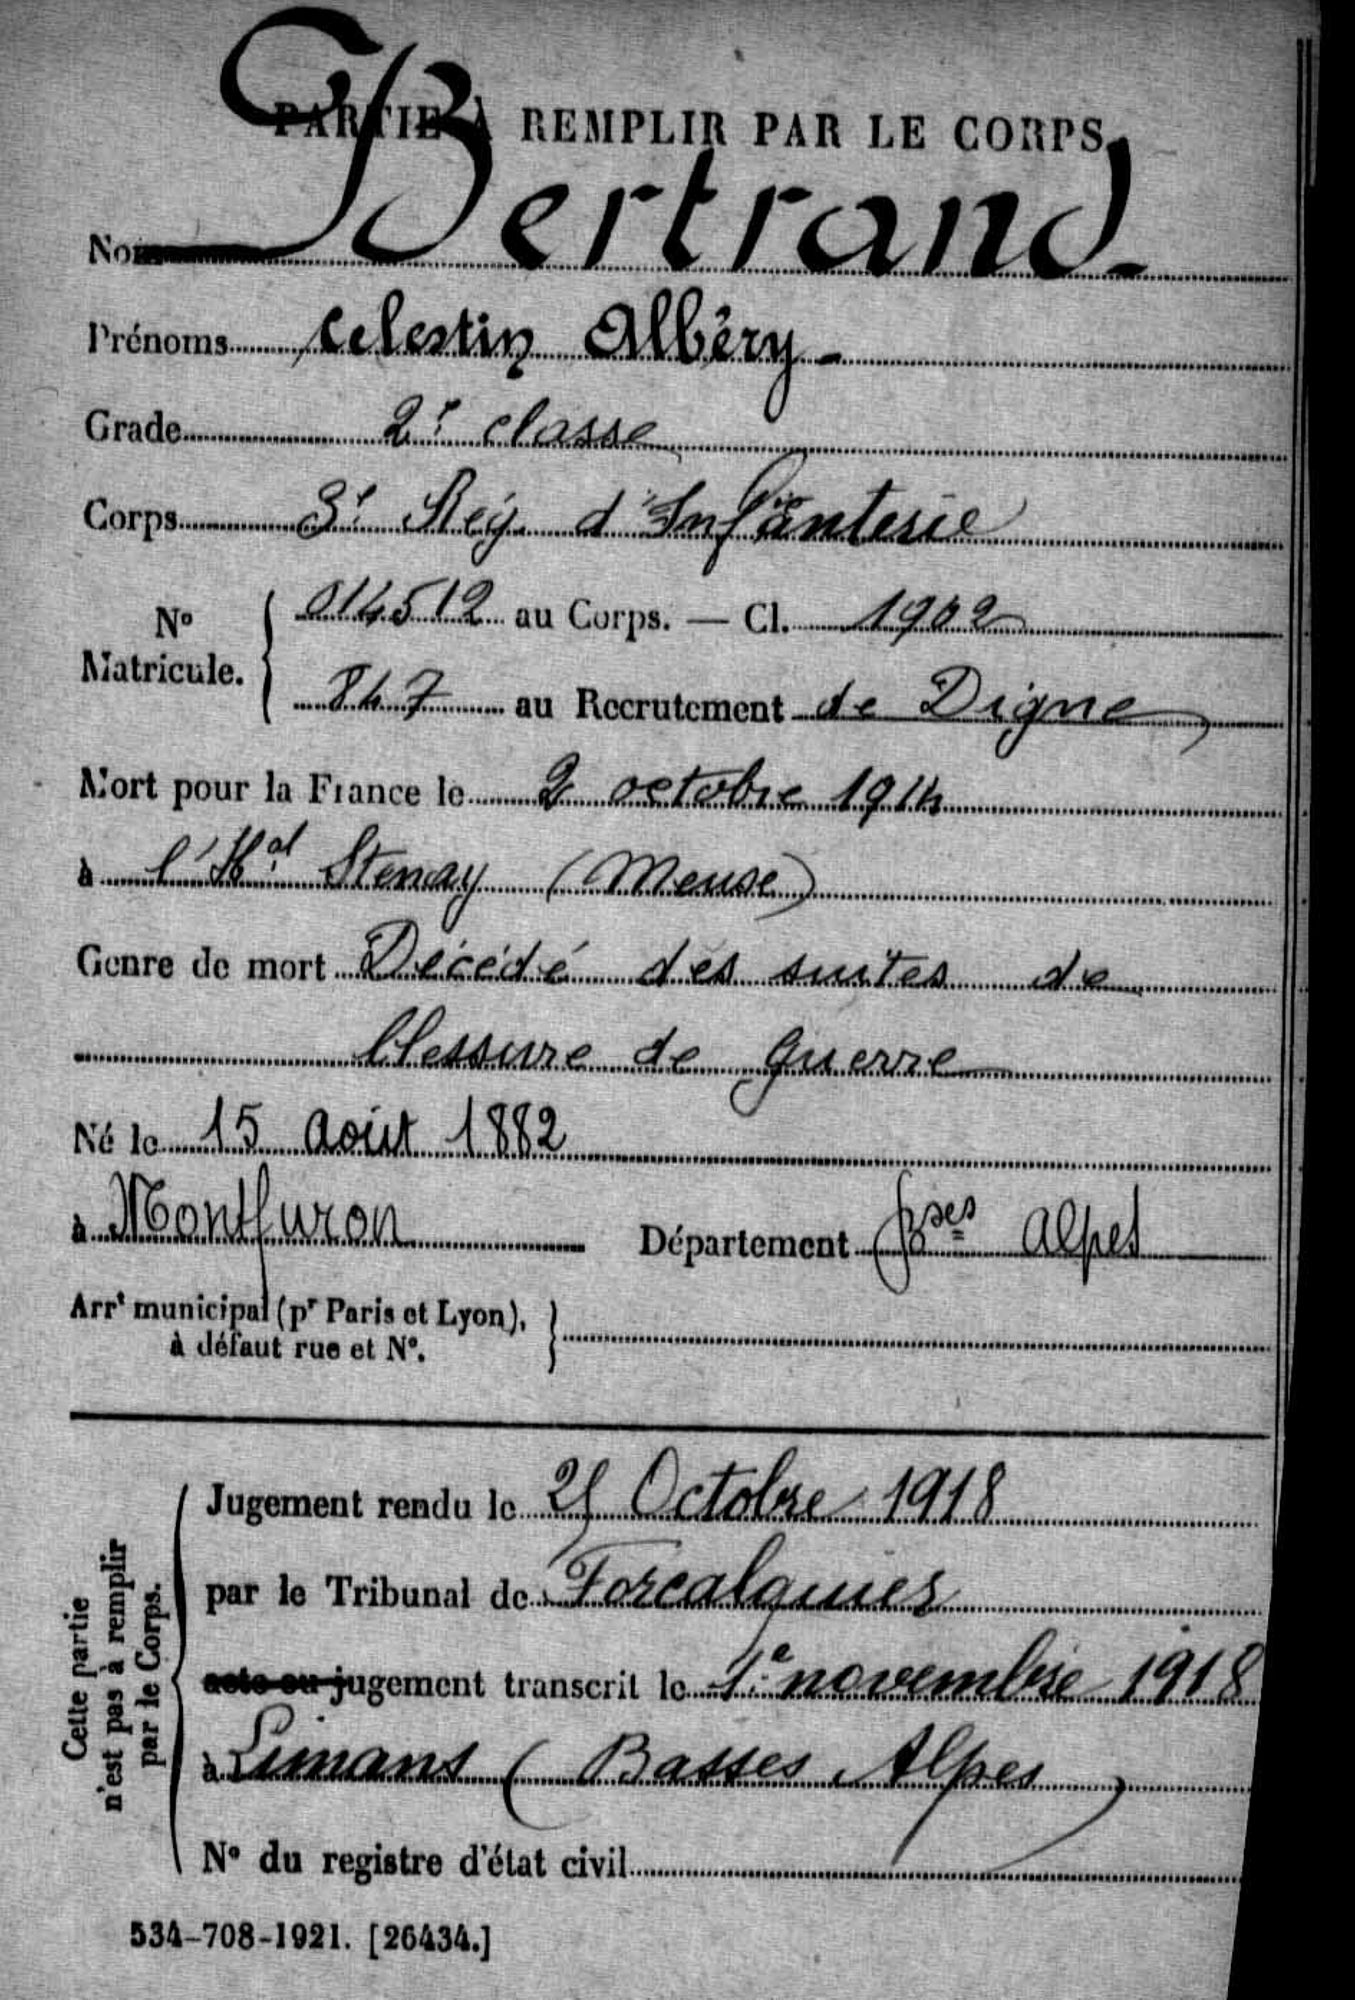 PARTIE À REMPLIR PAR LE CORPS.
Nom Bertrand
Prénoms Celestin Albéry
Grade 2e classe
Corps 3e Rég. d'Infanterie
No Matricule. { 014512 au Corps. — Cl. 1902
847 au Recrutement de Digne
Mort pour la France le 2 octobre 1914
à l'Hal Stenay (Meuse)
Genre de mort Décédé des suites de
blessure de guerre
Né le 15 août 1882
à Montfuron Département Bses Alpes
Arrt municipal (pr Paris et Lyon),
à défaut rue et No. }
Cette partie
n'est pas à remplir
par le Corps.
Jugement rendu le Octobre 1918
par le Tribunal de Forcalquier
acte ou jugement transcrit le 1e novembre 1918
à Limans (Basses Alpes)
No du registre d'état civil
534-708-1921. [26434.]